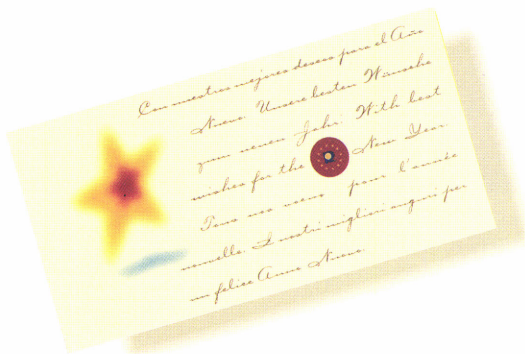 Con nuestros mejores deseos para el Año
Nuevo. Unsere besten Wünsche
zum neuen Jahr. With best
wishes for the New Year.
Tous nos voeux pour l'année
nouvelle. I nostri migliori auguri per
un felice Anno Nuovo.